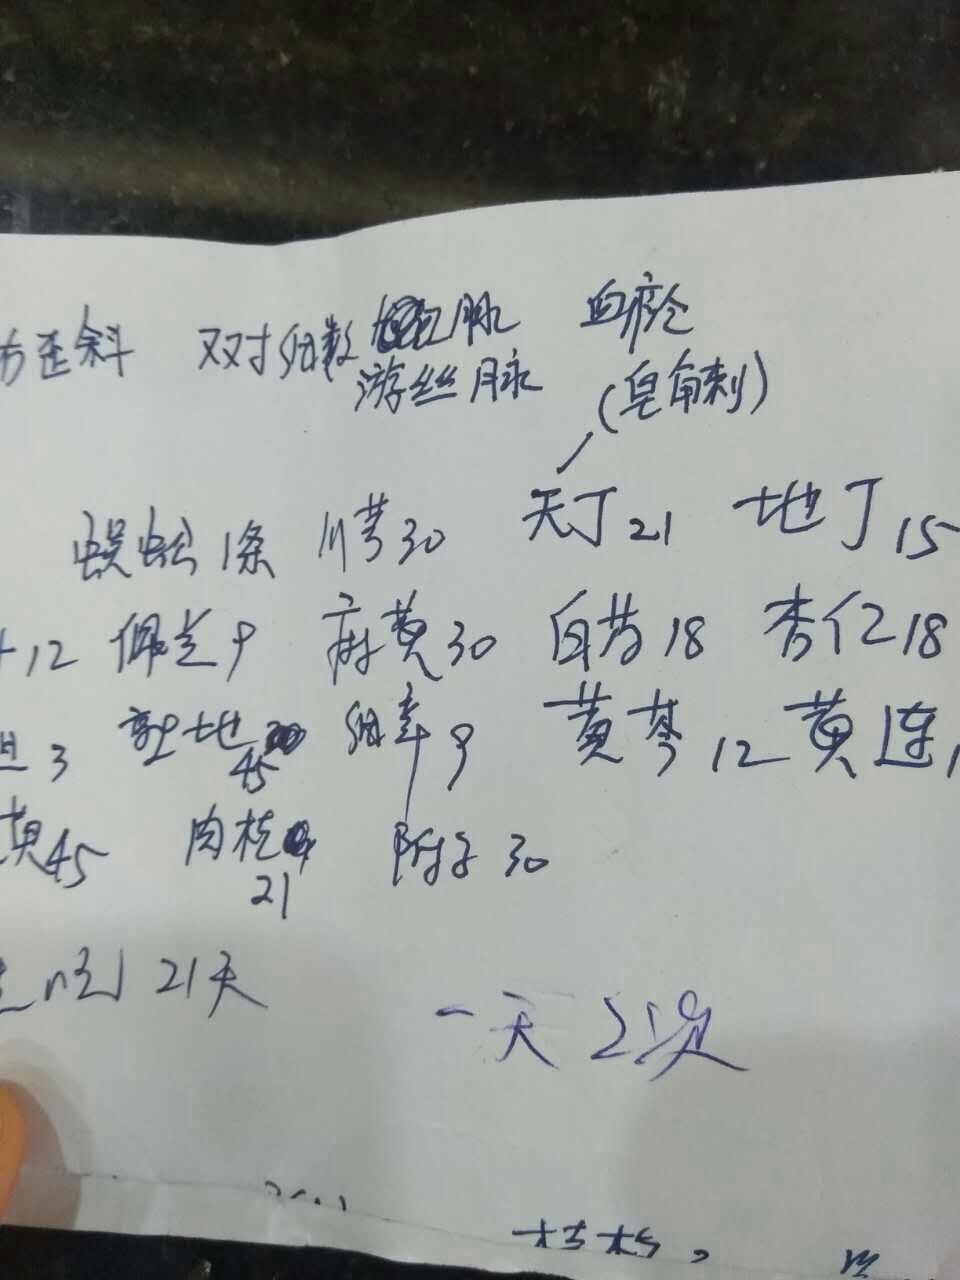 歪斜 双寸细数 脉 血瘀
游丝脉 (皂角刺)
蜈蚣1条 川芎30 天丁21 地丁15
12 佩兰9 麻黄30 白芍18 杏仁18
3 熟地45 细辛9 黄芩12 黄连
黄45 肉桂21 附子30
吃21天
一天2次
桔梗